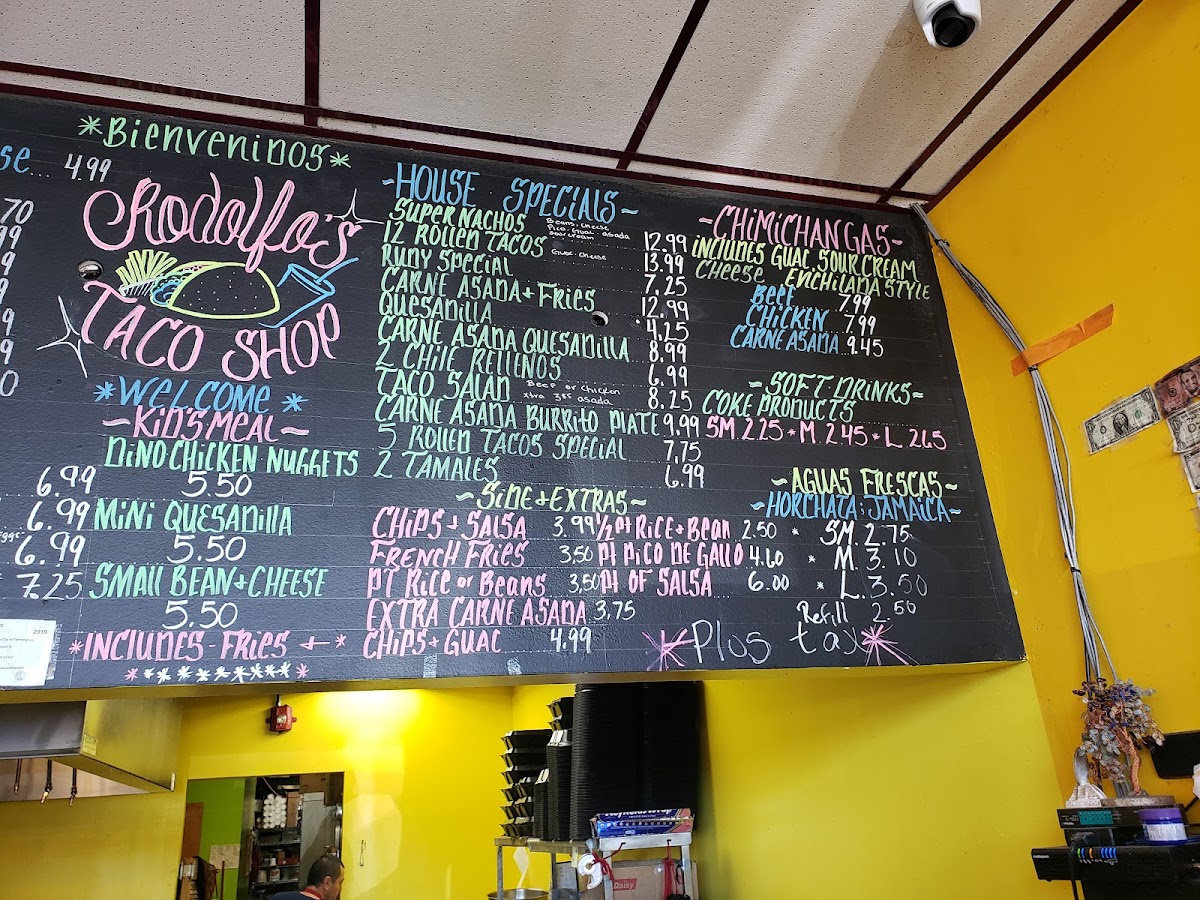 *Bienvenidos*
se... 4.99
Rodolfo's
TACO SHOP
*WELCOME*
~KiD'S MEAL~
DiNO CHICKEN NUGGETS
5.50
MiNi QUESADILLA
5.50
SMALL BEAN + CHEESE
5.50
*INCLUDES - FRIES
70
99
6.99
6.99
6.99
7.25
~HOUSE SPECiAlS~
SUPER NACHOS Beans, cheese Pico, Guac asada sour cream 12.99
12 ROLLED TACOS Guac. Cheese 13.99
RUDY SPECIAL 7.25
CARNE ASADA + FRiES 12.99
QUESADILLA 4.25
CARNE ASADA QUESADILLA 8.99
2 CHILE RELLENOS 6.99
TACO SALAD Beef or Chicken xtra 3.85 asada 8.25
CARNE ASADA BURRITO PLATE 9.99
5 ROLLED TACOS SPECIAL 7.75
2 TAMALES 6.99
~SiDE + EXTRAS~
CHiPS + SALSA 3.99
FRENCH FRIES 3.50
PT RICE or BEANS 3.50
EXTRA CARNE ASADA 3.75
CHiPS + GUAC 4.99
1/2 pt RICE + BEAN 2.50
Pt PICO DE GALLO 4.60
Pt OF SALSA 6.00
~CHiMiCHANGAS~
iNCLUDES GUAC, SOUR CREAM
CHEESE ENCHILADA STYLE
BEEF 7.99
CHICKEN 7.99
CARNE ASADA..9.45
~SOFT DRINKS~
COKE PRODUCTS
SM. 2.25 * M. 2.45 * L. 2.65
~AGUAS FRESCAS~
~HORCHATA; JAMAICA~
* SM. 2.75
* M. 3.10
* L. 3.50
Refill 2.50
Plus tax
Reynolds Wrap
Daisy